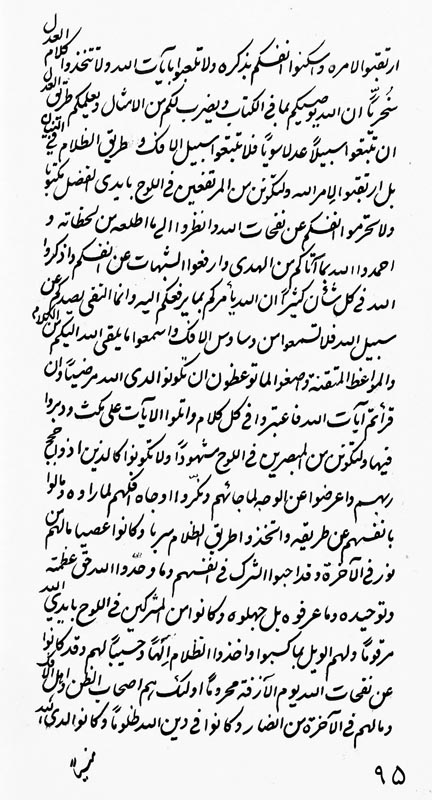 ارتقبوا لامره واسكنوا انفسكم بذكره ولا تلعبوا بآيات الله ولا تتخذوا كلام العدل
ان الله يوصيكم بما فى الكتاب ويضرب لكم من الامثال ويعلمكم طرق العدل
ان تتبعوا سبيلاً عدلا سوياً فلا تتبعوا سبيل الافك و طريق الظلام فى
بل ارتقبوا لامر الله ولتكونن من المرتقعين فى اللوح بايدى الفضل مكتوبا
ولا تحرموا انفسكم عن نفحات الله وانظروا الى ما اطلعه من لحظاته و
احمدوا الله بما آتاكم من الهدى وارفعوا الشبهات عن انفسكم واذكروا
الله فى كل شأن كثيرًا ان الله يأمركم بما يرفعكم اليه وانما التقى يصدكم عن
سبيل الله فلا تسمعوا من وساوس الافك واسمعوا ما يلقى الله اليكم من الكلام
والمواعظ المتقنة وصغوا لما توعظون ان تكونوا لدى الله مرضياً وان
قرأتم آيات الله فاعتبروا فى كل كلام واتلوا الآيات على مكث ودبروا
فيها ولتكونن من المبصرين فى اللوح مشهودًا ولا تكونوا كالذين اذ
ربهم واعرضوا عن الوجه لما جائهم و
بانفسهم عن طريقه واتخذوا طريق الظلام سربا وكانوا عصيا مالهم من
نور فى الآخرة وقد احبوا الشرك فى انفسهم وما وحدوا الله حق عظمته
وتوحيده وما عرفوه بل جهلوه وكانوا من المشركين فى اللوح بايدى الله
مرقوماً ولهم الويل بما كسبوا واخذوا الظلام إلهاً وحسيباً لهم وقد كانوا
عن نفحات الله يوم الآزفة محروماً اولئك هم اصحاب الظن واهل الافك
ومالهم فى الآخرة من انصار وكانوا فى دين الله ظلوماً وكانوا لدى الله
٩٥